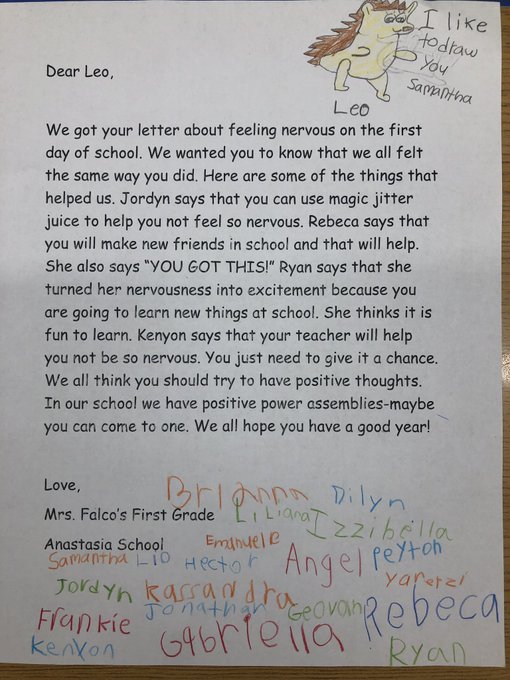 I like
to draw
you
Samantha
Leo
Dear Leo,
We got your letter about feeling nervous on the first
day of school. We wanted you to know that we all felt
the same way you did. Here are some of the things that
helped us. Jordyn says that you can use magic jitter
juice to help you not feel so nervous. Rebeca says that
you will make new friends in school and that will help.
She also says “YOU GOT THIS!” Ryan says that she
turned her nervousness into excitement because you
are going to learn new things at school. She thinks it is
fun to learn. Kenyon says that your teacher will help
you not be so nervous. You just need to give it a chance.
We all think you should try to have positive thoughts.
In our school we have positive power assemblies-maybe
you can come to one. We all hope you have a good year!
Love,
Brianna Dilyn
Mrs. Falco’s First Grade
Liliana Izzibella
Anastasia School
Emanuel
Samantha Hector Angel Peyton
Yaretzi
Jordyn Kassandra
Jonathan Geovan Rebeca
Frankie
Kenyon Gabriella Ryan